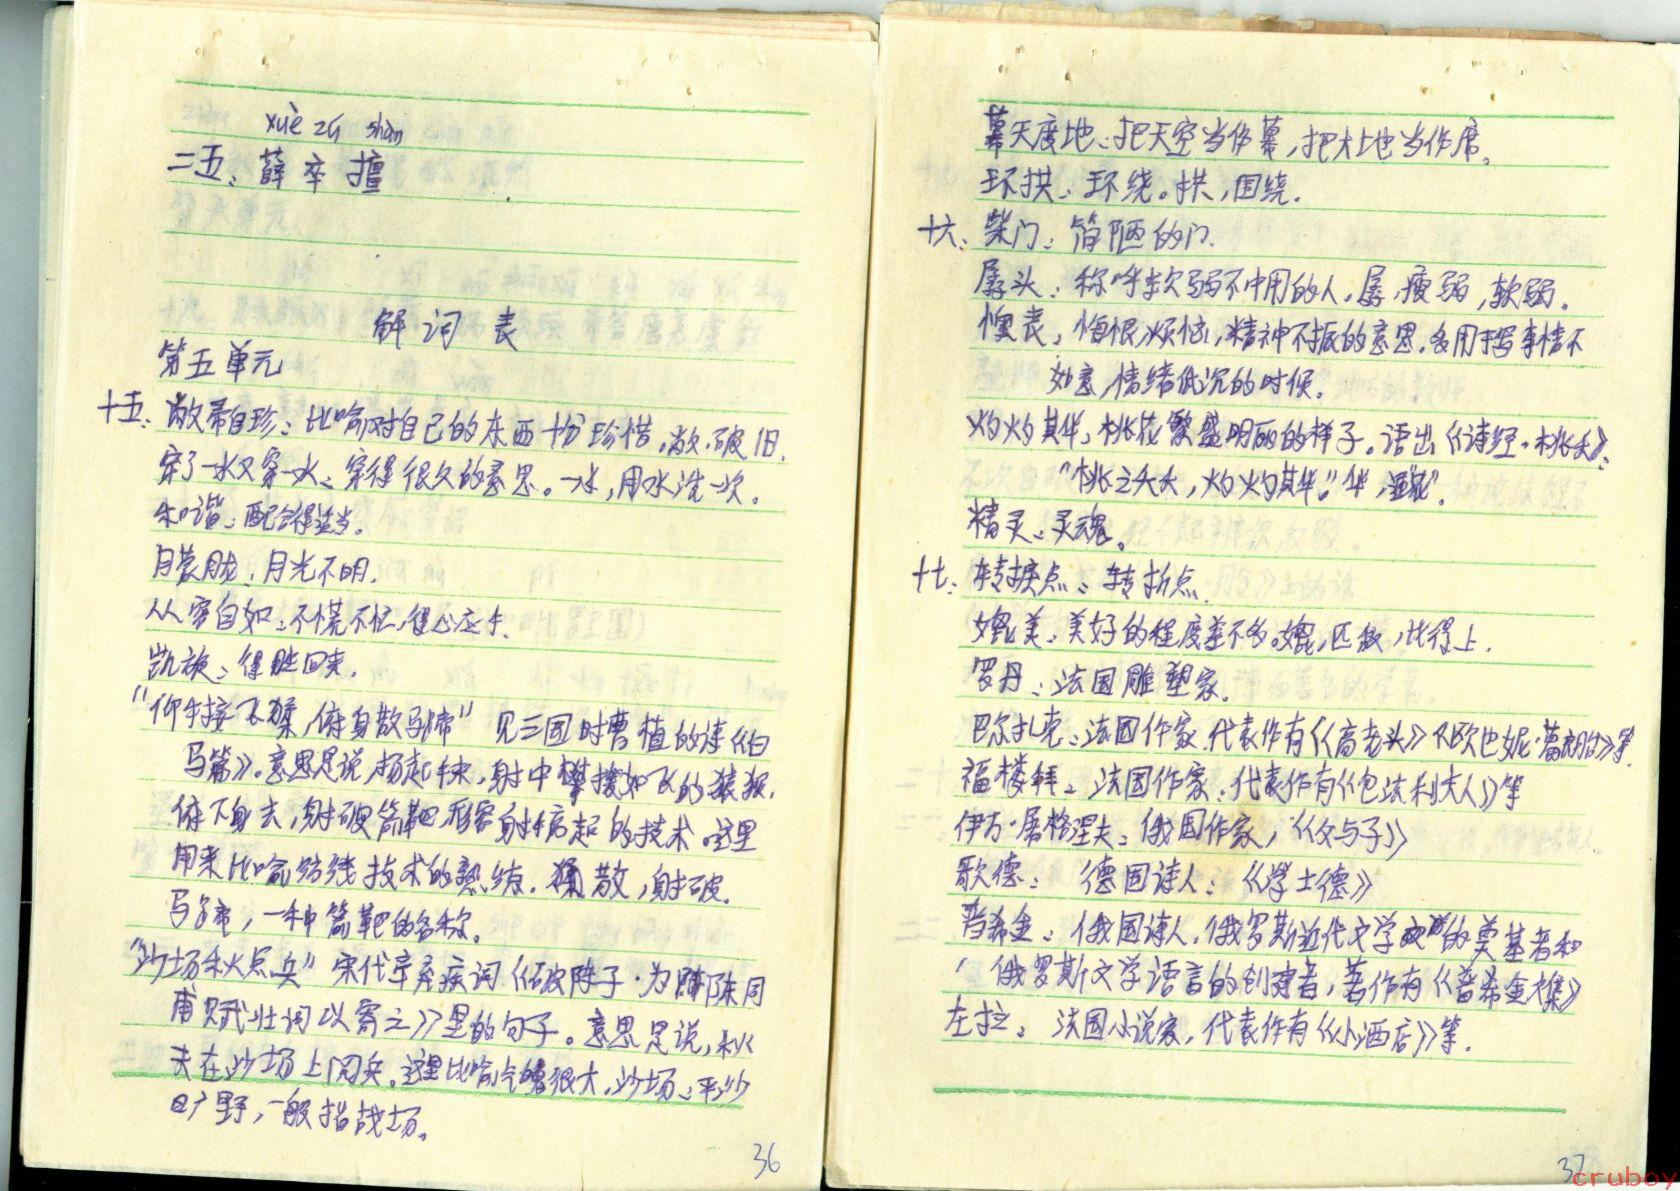 xuē zú shàn
二五、薛 卒 擅
解 词 表
第五单元
十五、敝帚自珍：比喻对自己的东西十分珍惜。敝，破旧。
穿了一水又穿一水：穿得很久的意思。一水，用水洗一次。
和谐：配合得适当。
朦胧：月光不明。
从容自如：不慌不忙，得心应手。
凯旋：得胜回来。
“仰手接飞猱，俯身散马蹄” 见三国时曹植的诗《白
马篇》。意思是说，扬起手来，射中攀援如飞的猿猴，
俯下身去，射破箭靶，形容射
的技术。这里
用来比喻纺线技术的熟练。散，射破。
马蹄，一种箭靶的名称。
“沙场秋点兵” 宋代辛弃疾词《破阵子·为陈同
甫赋壮词以寄之》里的句子。意思是说，秋
天在沙场上阅兵。这里比喻气魄很大。沙场：平沙
旷野，一般指战场。
36
幕天席地：把天空当作幕，把大地当作席。
环拱：环绕。拱，围绕。
十六、柴门：简陋的门.
孱头：称呼软弱不中用的人。孱，瘦弱，软弱。
懊丧：悔恨，烦恼，精神不振的意思。多用于写事情不
如意，情绪低沉的时候。
灼灼其华：桃花繁盛明丽的样子。语出《诗经·桃夭》：
“桃之夭夭，灼灼其华。” 华，
精灵：灵魂。
十七、转捩点：转折点.
媲美：美好的程度差不多。媲，匹敌，比得上.
罗丹：法国雕塑家.
巴尔扎克：法国作家.代表作有《高老头》《欧也妮·葛朗台》等.
福楼拜：法国作家.代表作有《包法利夫人》等
伊万·屠格涅夫：俄国作家，《父与子》
歌德： 德国诗人：《浮士德》
普希金：俄国诗人.俄罗斯近代文学的奠基者和
俄罗斯文学语言的创建者，著作有《普希金文集》
左拉： 法国小说家，代表作有《小酒店》等.
37
cruboy